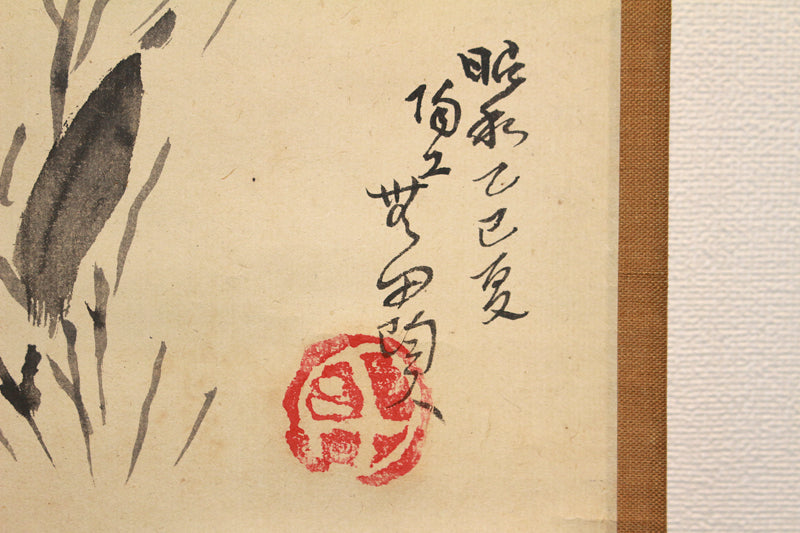 昭和乙巳夏
陶工無田陶人